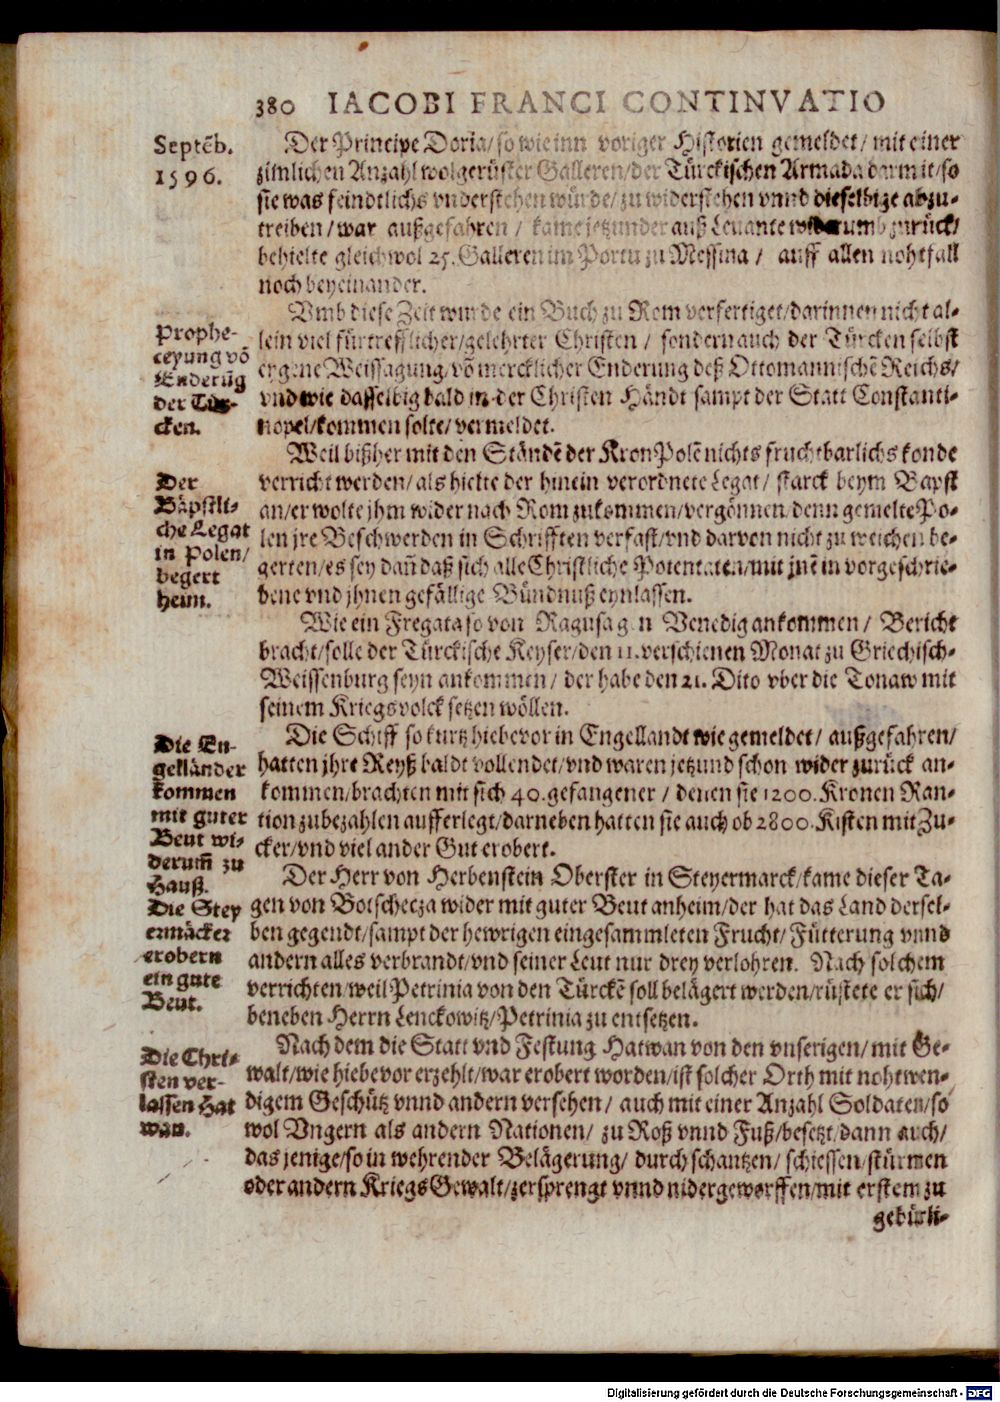 380 IACOBI FRANCI CONTINVATIO
Septẽb.
1596.
Der Principe Doria/so wie inn voriger Historien gemeldet/ mit einer
zimlichen Anzahl wolgerüster Galleren/der Türckischen Armada darmit/so
sie was feindtlichs vnderstehen würde/zu widerstehen vnnd dieselbige abzu-
treiben/war außgefahren / kame jetzunder auß Leuante widerumb zurück/
behielte gleichwol 25. Galleren im Portu zu Messina / auff allen nohtfall
noch beyeinander.
Prophe-
ceyung võ
Enderũg
der Tür-
cken.
Vmb diese Zeit wurde ein Buch zu Rom verfertiget/darinnen nicht al-
lein viel fürtrefflicher/gelehrter Christen / sondern auch der Türcken selbst
ergene Weissagung/võ mercklicher Enderung deß Ottomannischẽ Reichs/
vnd wie dasselbig bald in der Christen Händt sampt der Statt Constanti-
nopel/kommen solte/vermeldet.
Der
Bäpstli-
che Legat
in Polen/
begert
heim.
Weil bißher mit den Ständẽ der Kron Polẽ nichts fruchtbarlichs konde
verricht werden/als hielte der hinein verordnete Legat/ starck beym Bapst
an/er wolte jhm wider nach Rom zukommen/vergönnen/denn gemelte Po-
len jre Beschwerden in Schrifften verfast/vnd darvon nicht zu weichen be-
gerten/es sey dañ daß sich alle Christliche Potentaten/mit jnẽ in vorgeschrie-
bene vnd jhnen gefällige Bündnuß eynlassen.
Wie ein Fregata so von Ragusa gen Venedig ankommen/ Bericht
bracht/solle der Türckische Keyser/den 11. verschienen Monat zu Griechisch-
Weissenburg seyn ankommen/ der habe den 21. Dito vber die Tonaw mit
seinem Kriegsvolck setzen wöllen.
Die En-
gelländer
kommen
mit guter
Beut wi-
derum̃ zu
Hauß.
Die Schiff so kurtz hiebevor in Engellandt wie gemeldet/ außgefahren/
hatten jhre Reyß baldt vollendet/vnd waren jetzund schon wider zurück an-
kommen/brachten mit sich 40. gefangener / denen sie 1200. Kronen Ran-
tion zubezahlen aufferlegt/darneben hatten sie auch ob 2800. Kisten mit Zu-
cker/vnd viel ander Gut erobert.
Die Stey
ermäcker
erobern
ein gute
Beut.
Der Herr von Herbenstein Oberster in Steyermarck/kame dieser Ta-
gen von Botschecza wider mit guter Beut anheim/der hat das Land dersel-
ben gegendt/sampt der hewrigen eingesammleten Frucht/Fütterung vnnd
andern alles verbrandt/vnd seiner Leut nur drey verlohren. Nach solchem
verrichten/weil Petrinia von den Türckẽ soll belägert werden/rüstete er sich/
beneben Herrn Lenckowitz/Petrinia zu entsetzen.
Die Chri-
sten ver-
lassen Hat
wan.
Nach dem die Statt vnd Festung Hatwan von den vnserigen/ mit Ge-
walt/wie hiebevor erzehlt/war erobert worden/ist solcher Orth mit nohtwen-
digem Geschütz vnnd andern versehen/ auch mit einer Anzahl Soldaten/so
wol Vngern als andern Nationen/ zu Roß vnnd Fuß/besetzt/dann auch/
das jenige/so in wehrender Belägerung/ durch schantzen/ schiessen/stürmen
oder andern Kriegs Gewalt/zersprengt vnnd nidergeworffen/mit erstem zu
gebürli-
Digitalisierung gefördert durch die Deutsche Forschungsgemeinschaft - DFG